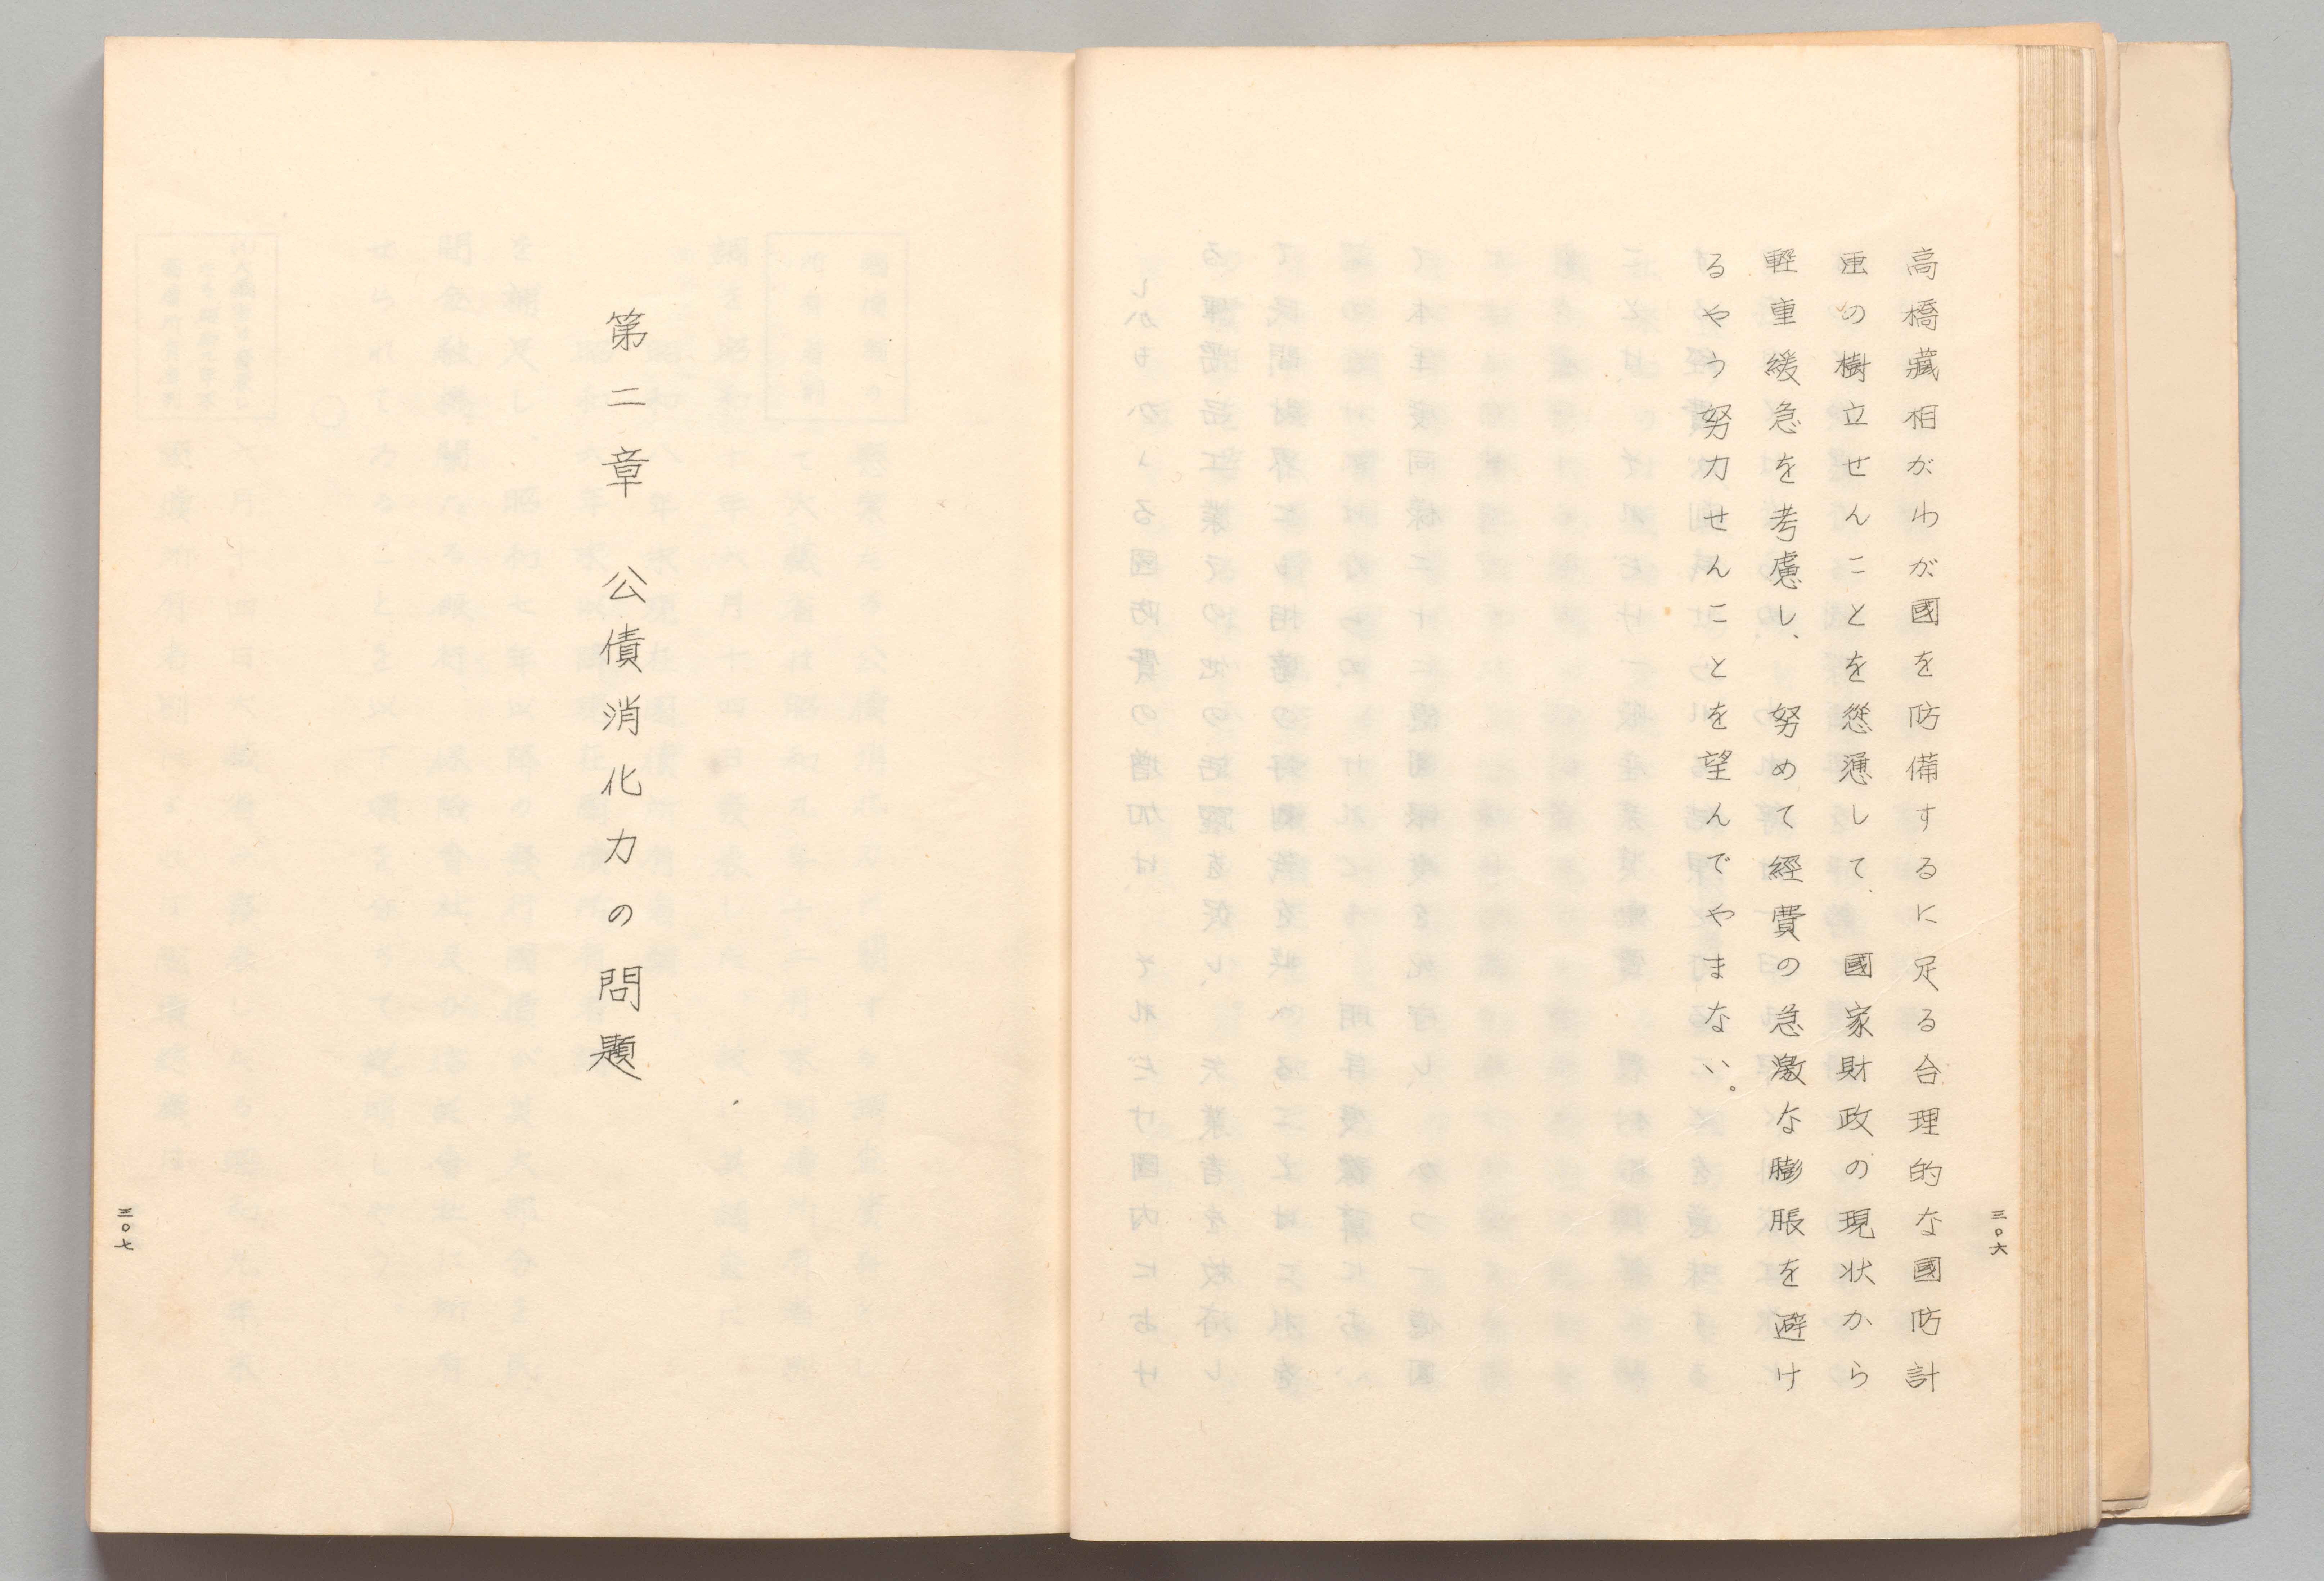 高橋藏相がわが國を防備するに足る合理的な國防計
画の樹立せんことを慫慂して、國家財政の現状から
軽重緩急を考慮し、努めて經費の急激な膨脹を避け
るやう努力せんことを望んでやまない。
三〇六
第二章　公債消化力の問題
三〇七